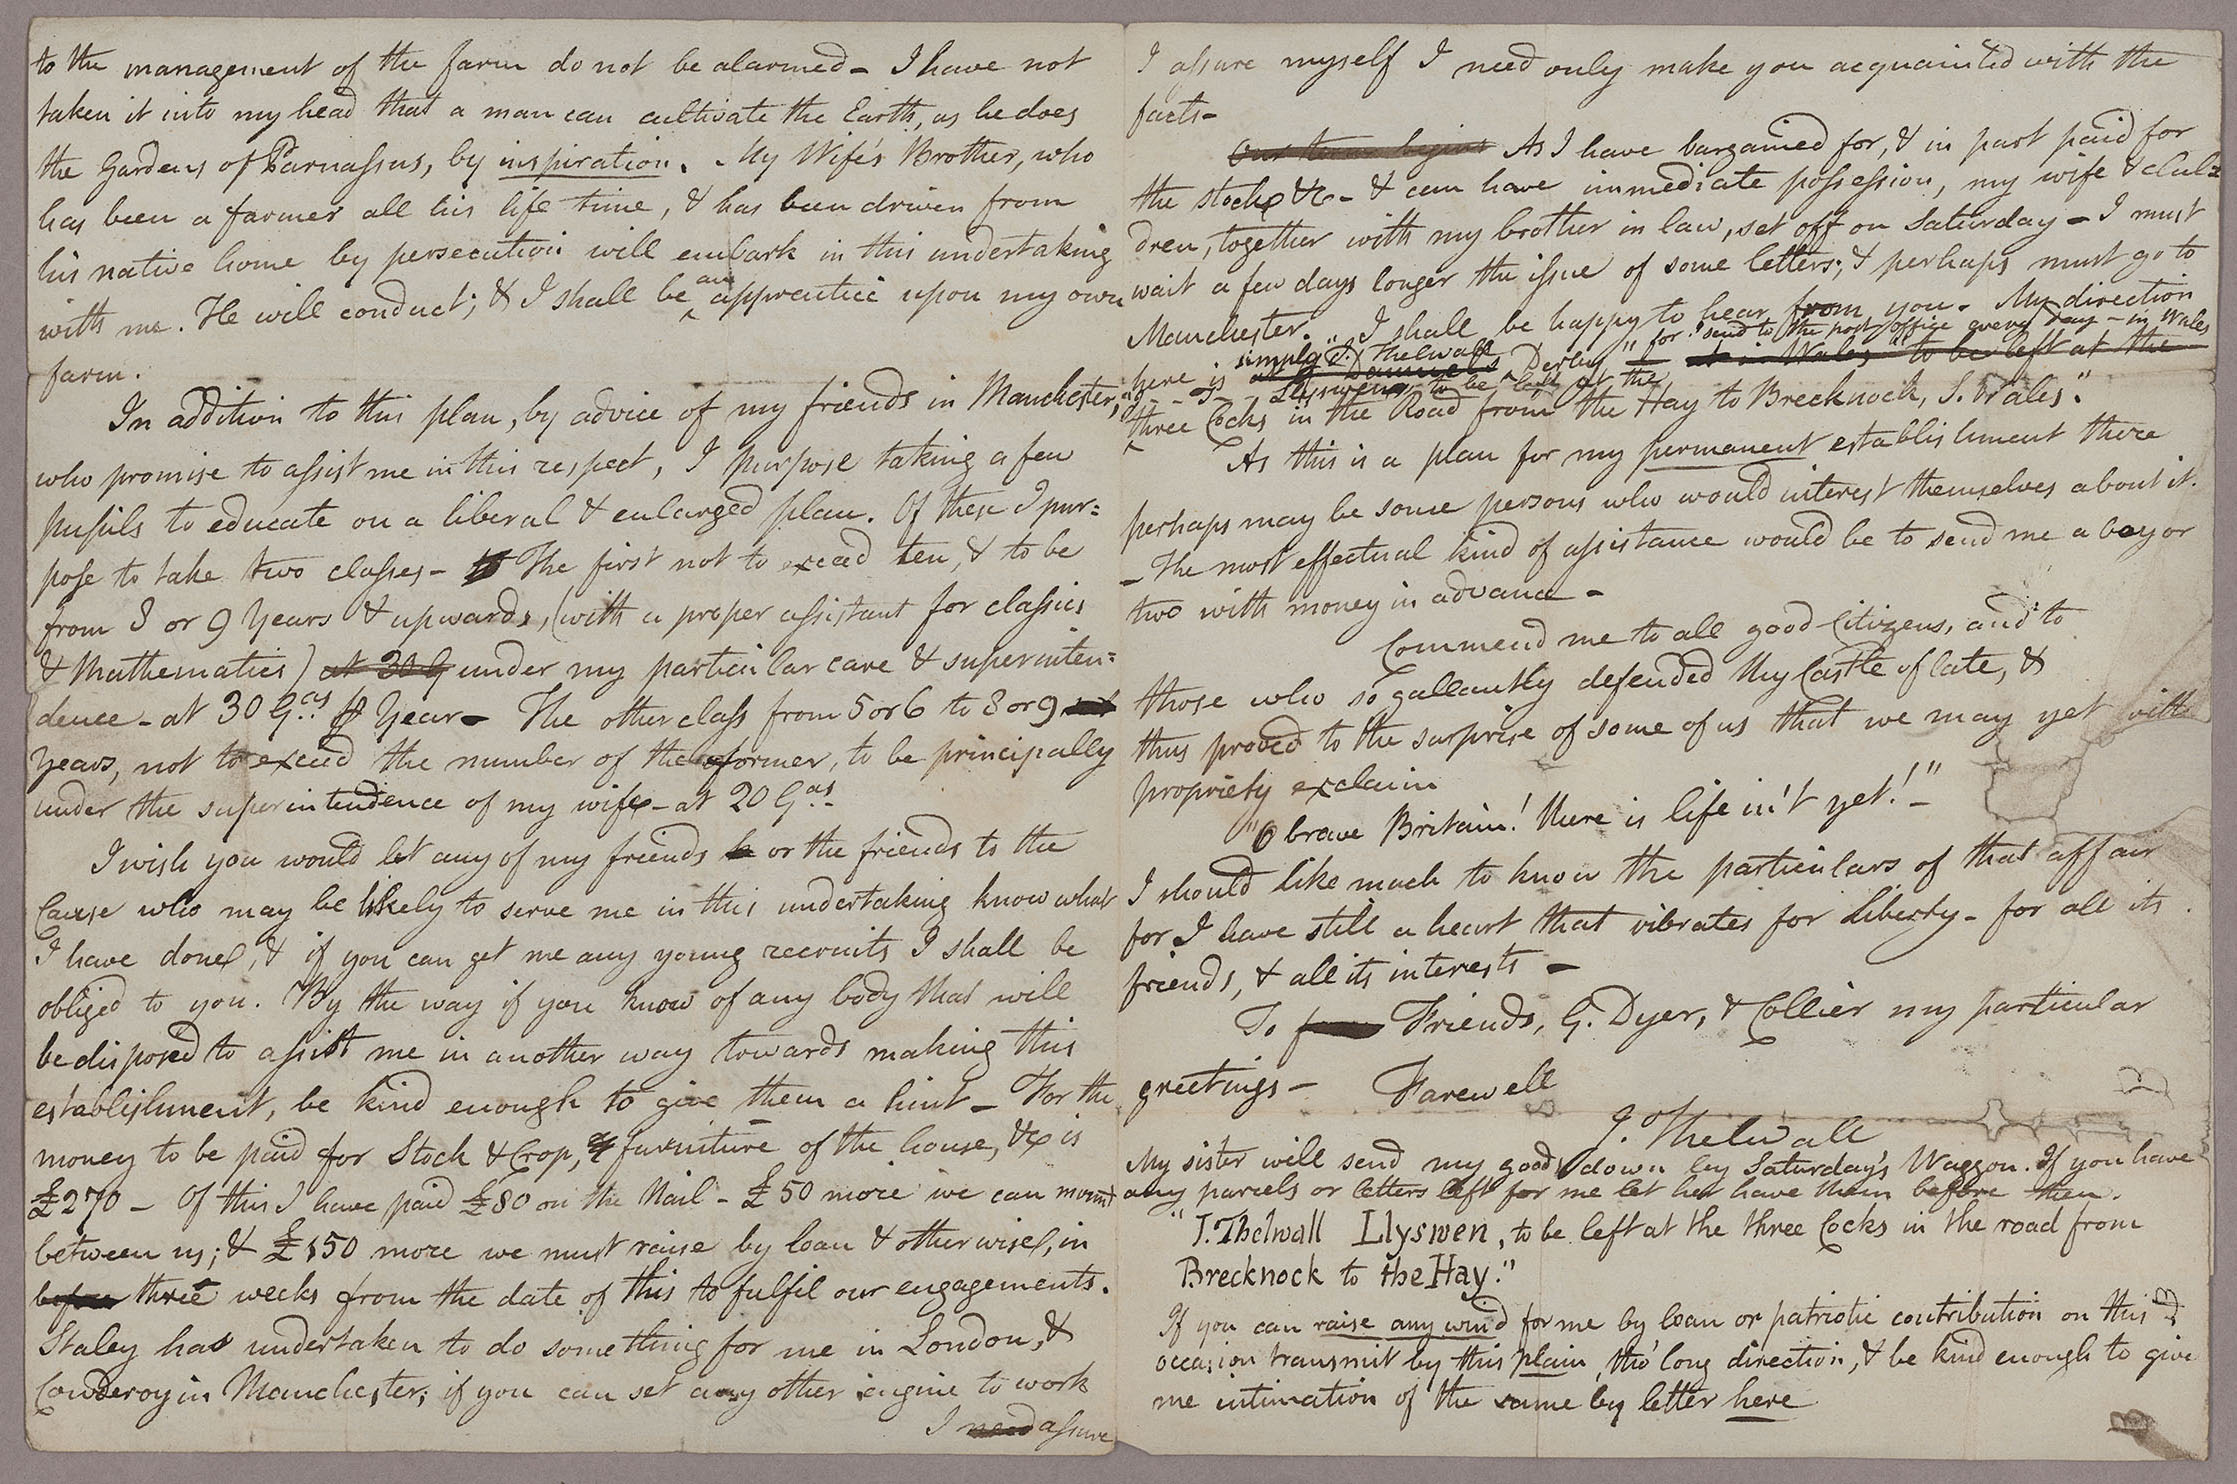 to the management of the farm do not be alarmed – I have not
taken it into my head that a man can cultivate the Earth, as he does
the Gardens of Parnassus, by inspiration. My Wife's Brother, who
has been a farmer all his life time, & has been driven from
his native home by persecution will embark in this undertaking
with me. He will conduct; & I shall be an apprentice upon my own
farm.
In addition to this plan, by advice of my friends in Manchester,
who promise to assist me in this respect, I purpose taking a few
pupils to educate on a liberal & enlarged plan. Of these I pur=
pose to take two classes – The first not to exceed ten, & to be
from 8 or 9 Years & upwards, (with a proper assistant for classics
& Mathematics) at 30 G under my particular care & superinten=
dence – at 30 Gas. ⅌ Year – The other class from 5 or 6 to 8 or 9
Years, not to exceed the number of the former, to be principally
under the superintendence of my wife – at 20 Gas.
I wish you would let any of my friends or the friends to the
Cause who may be likely to serve me in this undertaking know what
I have done, & if you can get me any young recruits I shall be
obliged to you. By the way if you know of any body that will
be disposed to assist me in another way towards making this
establishment, be kind enough to give them a hint – For the
money to be paid for Stock & Crop, & furniture of the house, &c is
£270 – Of this I have paid £80 on the Nail – £50 more we can mount
between us; & £150 more we must raise by loan & otherwise, in
before three weeks from the date of this to fulfil our engagements.
Staley has undertaken to do something for me in London, &
Cowderoy in Manchester; if you can set any other engine to work
I need assure
I assure myself I need only make you acquainted with the
facts –
Our term begins As I have bargained for, & in part paid for
the stock, &c – & can have immediate possession, my wife & chil=
dren, together with my brother in law, set off on Saturday – I must
wait a few days longer the issue of some letters; & perhaps must go to
Manchester. I shall be happy to hear from you. My direction
simply "J. Thelwall Derby" for I send to the post office every day – in Wales
here is
Llyswen to be left at the
three Cocks in the Road from the Hay to Brecknock, S. Wales."
As this is a plan for my permanent establishment there
perhaps may be some persons who would interest themselves about it.
– The most effectual kind of assistance would be to send me a boy or
two with money in advance –
Commend me to all good Citizens, and to
those who so gallantly defended thy Castle of late, &
thus proved to the surprise of some of us that we may yet with
propriety exclaim
"O brave Britain! there is life in't yet!" –
I should like much to know the particulars of that affair
for I have still a heart that vibrates for Liberty – for all its
friends, & all its interests –
To Friends, G. Dyer, & Collier my particular
greetings – Farewell
J. Thelwall
My sister will send my goods down by Saturday's Waggon. If you have
any parcels or letters left for me let her have them before then.
"J. Thelwall Llyswen, to be left at the three Cocks in the road from
Brecknock to the Hay."
If you can raise any wind for me by loan or patriotic contribution on this
occasion transmit by this plain, tho' long direction, & be kind enough to give
me intimation of the same by letter here